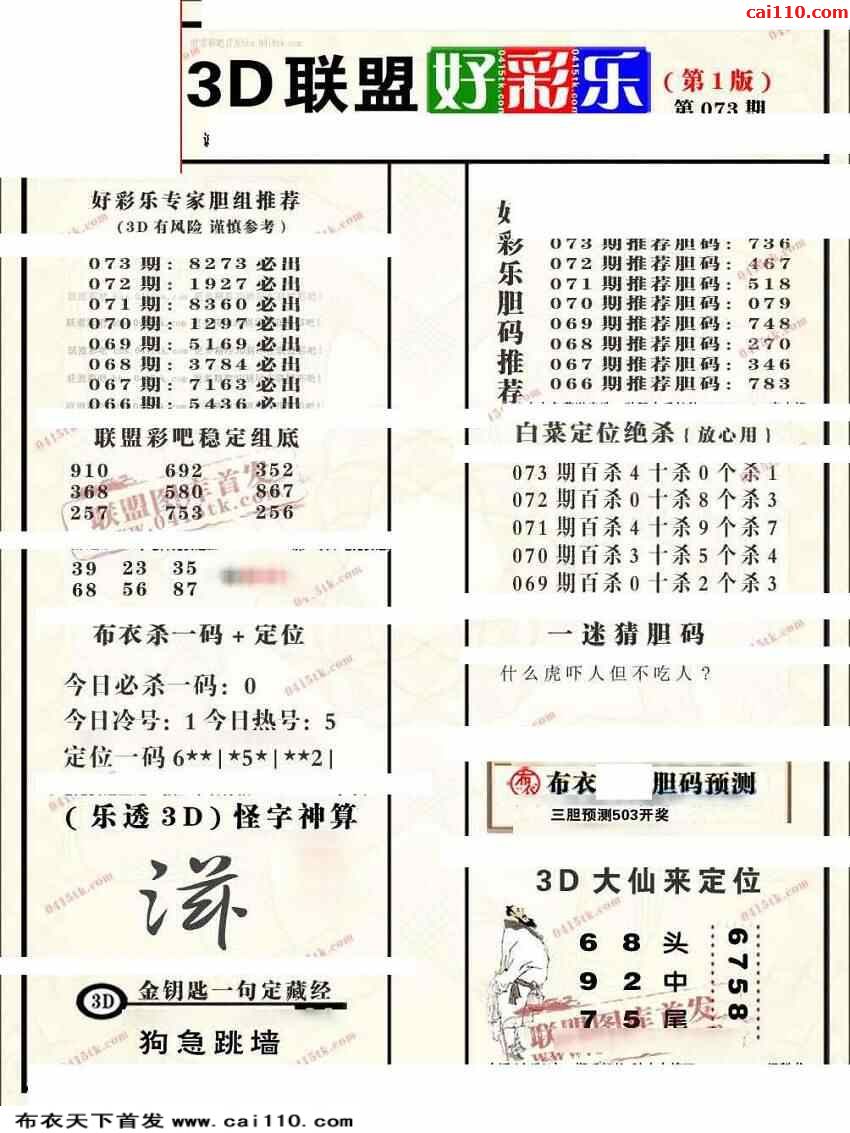 cai110.com
3D联盟好彩乐
(第1版)
第073期
好彩乐专家胆组推荐
(3D有风险 谨慎参考)
073期: 8273必出
072期: 1927必出
071期: 8360必出
070期: 1297必出
069期: 5169必出
068期: 3784必出
067期: 7163必出
066期: 5436必出
联盟彩吧稳定组底
910 692 352
368 580 867
257 753 256
39 23 35
68 56 87
布衣杀一码+定位
今日必杀一码: 0
今日冷号: 1 今日热号: 5
定位一码 6**|*5*|**2|
(乐透3D) 怪字神算
3D
金钥匙一句定藏经
狗急跳墙
好彩乐胆码推荐
073期推荐胆码: 736
072期推荐胆码: 467
071期推荐胆码: 518
070期推荐胆码: 079
069期推荐胆码: 748
068期推荐胆码: 270
067期推荐胆码: 346
066期推荐胆码: 783
白菜定位绝杀{放心用}
073期百杀4十杀0个杀1
072期百杀0十杀8个杀3
071期百杀4十杀9个杀7
070期百杀3十杀5个杀4
069期百杀0十杀2个杀3
一迷猜胆码
什么虎吓人但不吃人?
布衣 胆码预测
三胆预测503开奖
3D大仙来定位
6 8 头
9 2 中
7 5 尾
6758
联盟图库首发
www.0415tk.com
0415tk.com
布衣天下首发 www.cai110.com